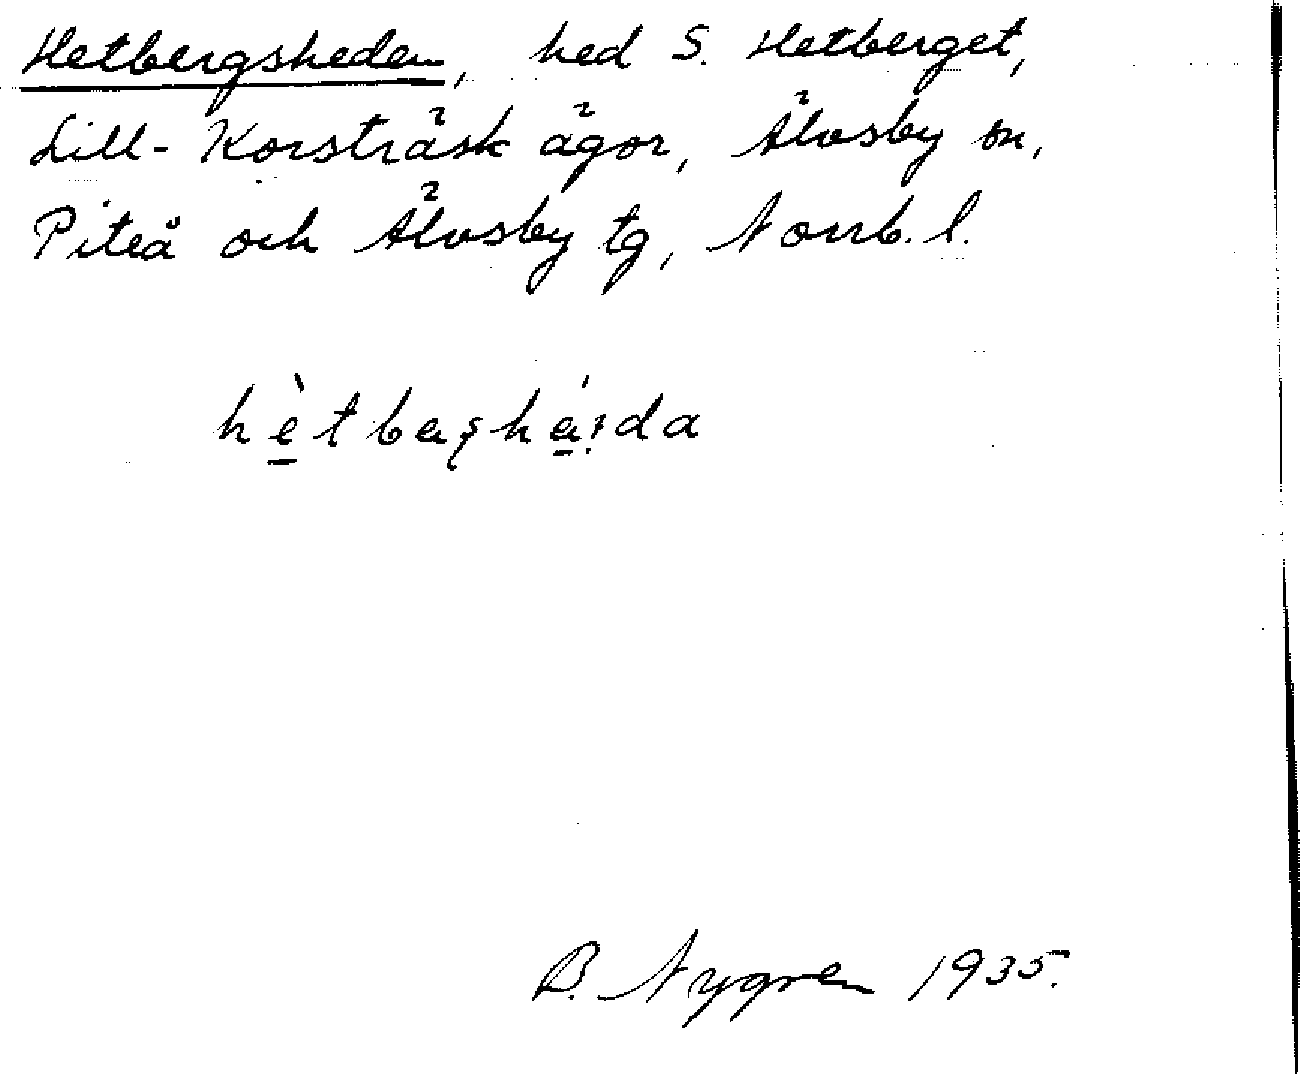 Hetbergsheden, hed S. Hetberget,
Lill-Korsträsk ägor, Älvsby sn,
Piteå och Älvsby tg, Norrb. l.
hètbaşhá:da
B. Nygren 1935.